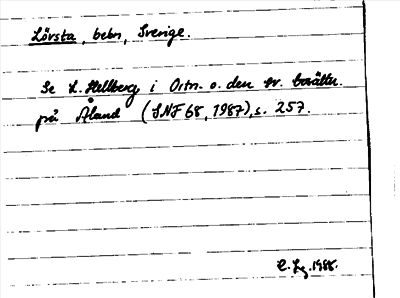 Lörsta, bebn, Sverige.
Se L. Hellberg i Ortn. o. den sv. bosättn.
på Åland (SNF 68, 1987), s. 257.
1988.